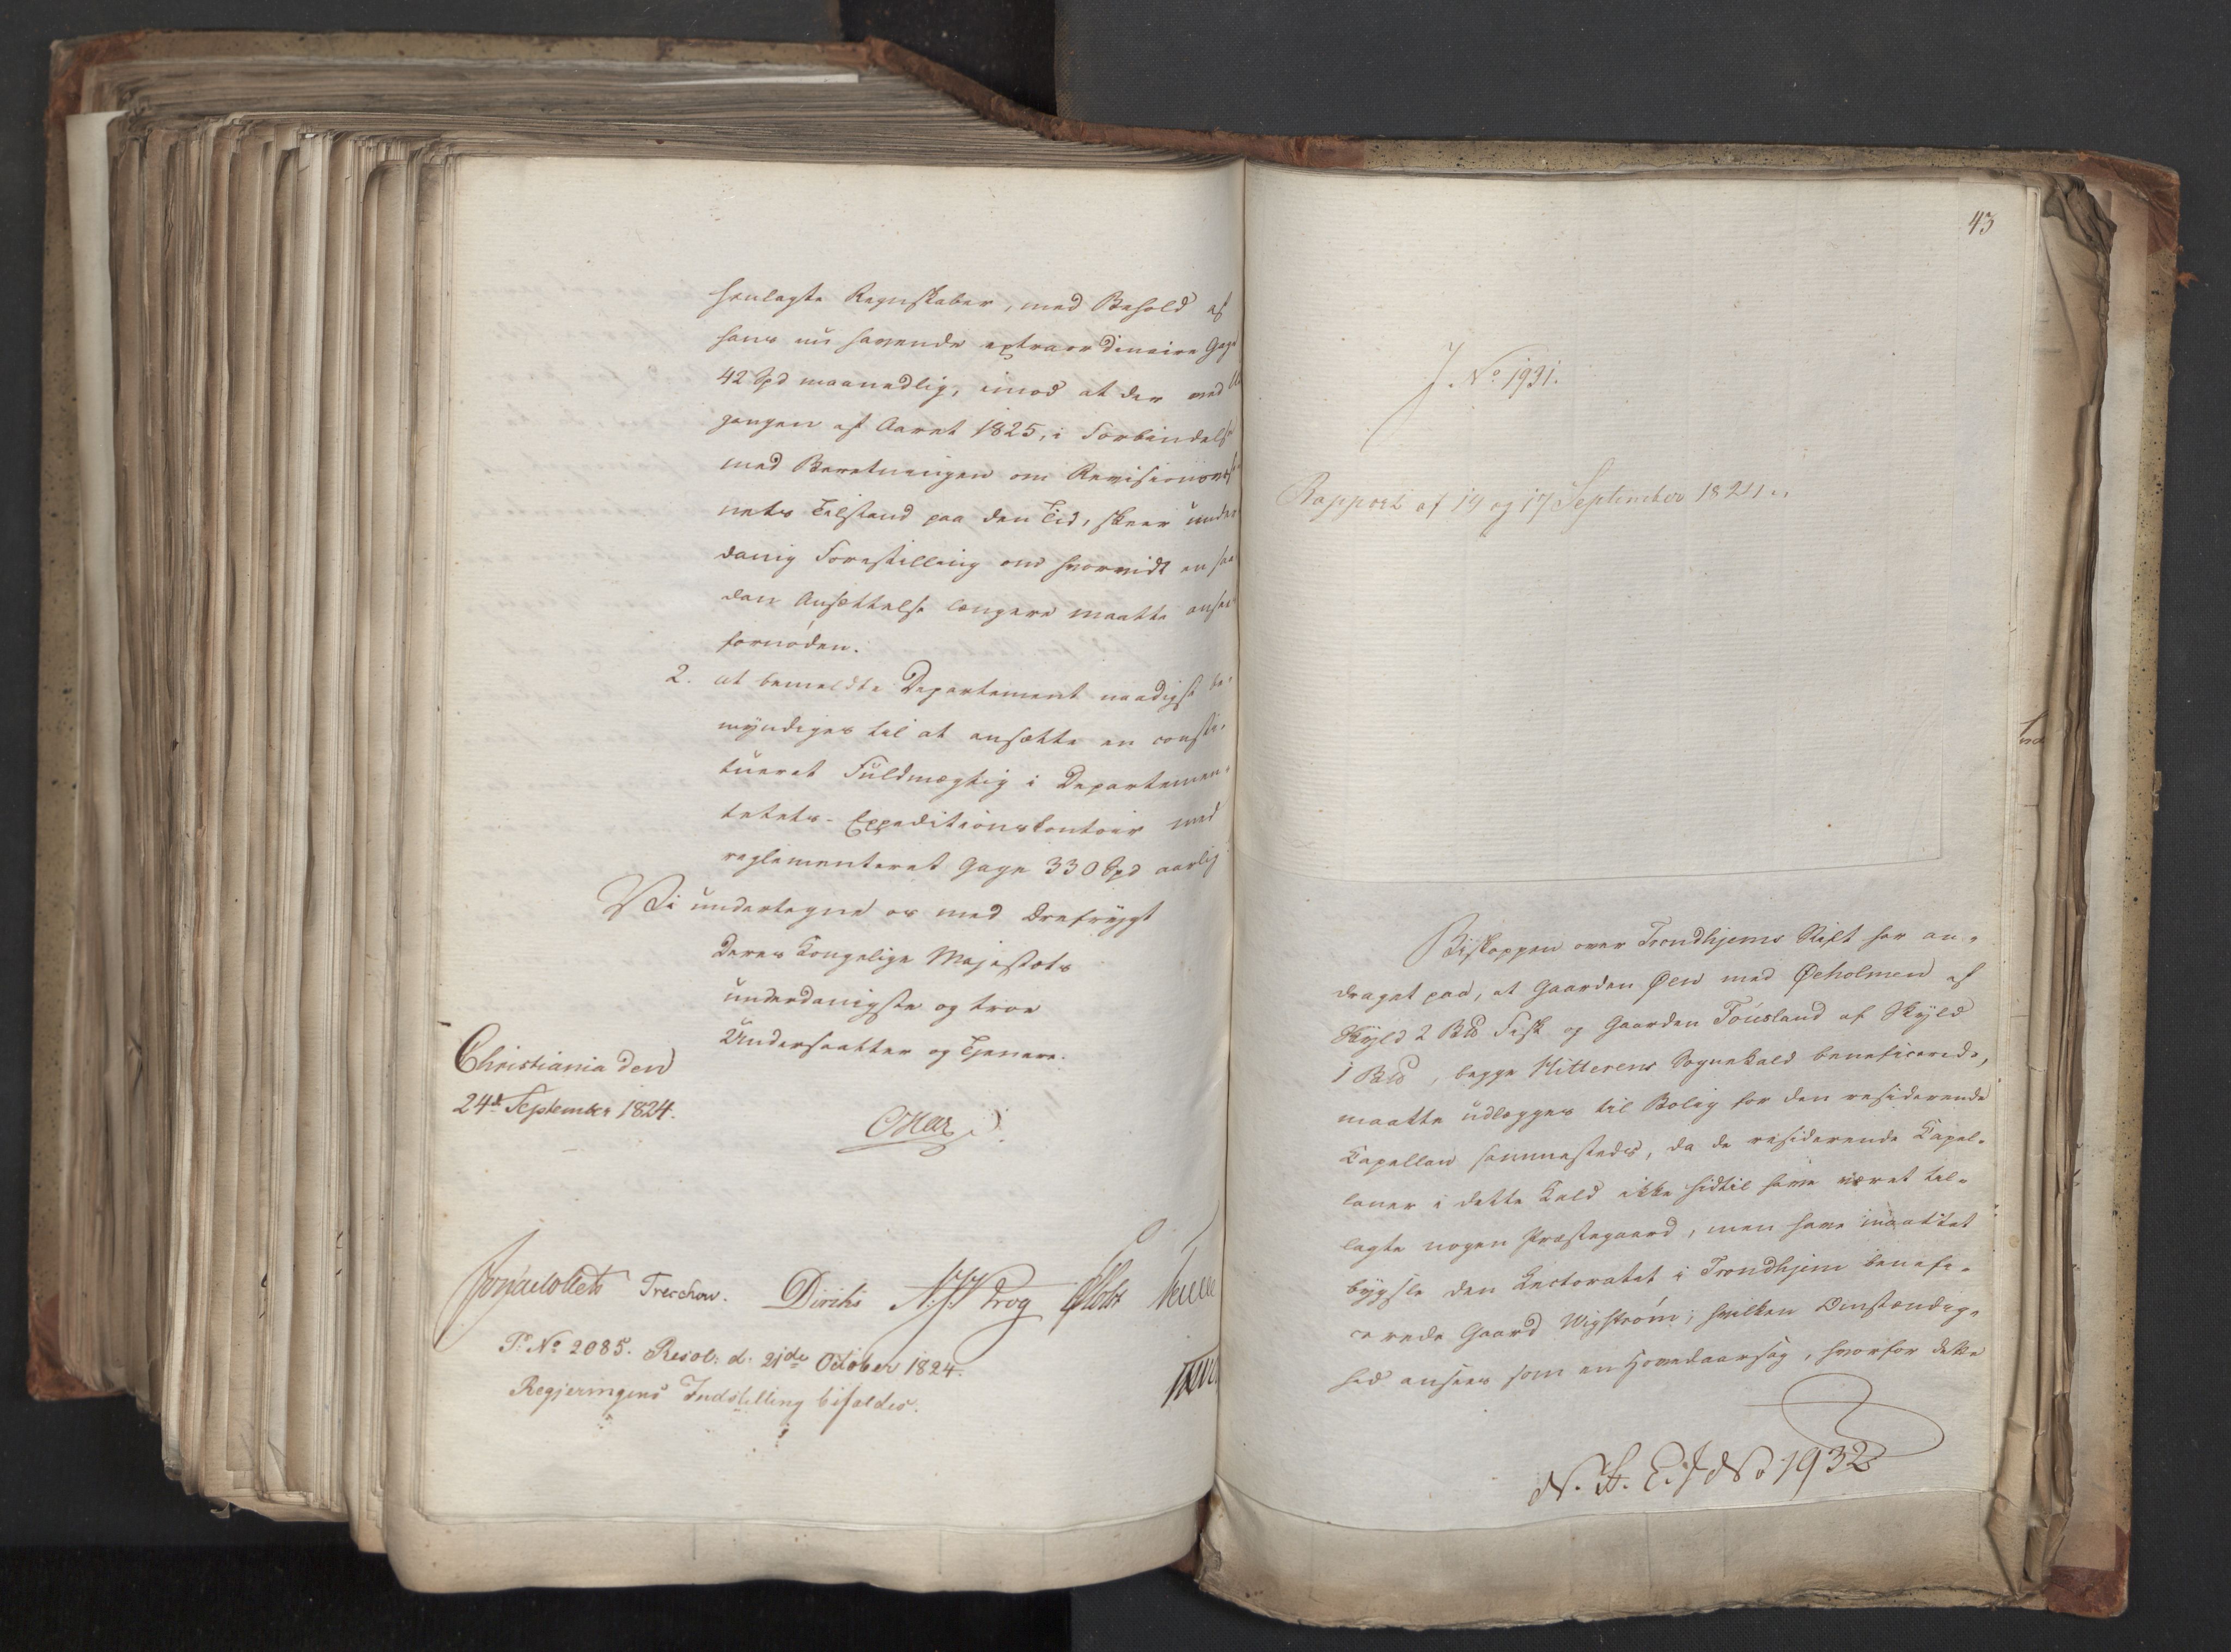 henlagte Regnskaber, med Behold af
hans nu havende extraordinaire Gage
42 Spd maanedlig, imod at der med Ud
gangen af Aaret 1825, i Forbindelse
med Beretningen om Revisionsvæs
nets Tilstand paa den Tid, skeer under
danig Forestilling om hvorvidt en saa
dan Ansættelse længere maatte ansees
fornöden.
2. at bemeldte Departement naadigst be-
myndiges til at ansætte en consti-
tueret Fuldmægtig i Departemen-
tetets Expeditionskontoir med
reglementeret Gage 330 Spd aarlig
Vi undertegne os med Ærefrygt
Deres Kongelige Majestæts
underdanigste og troe
Undersaatter og Tjenere.
Christiania den
24d September 1824.
Oscar
Jonas Collett Treschow. Diriks N. J. Krog
P. No 2085. Resol: d. 21de October 1824.
Regjeringens Indstilling bifaldes.
43
J. No 1931.
Rapport af 14 og 17 September 1824.
Biskoppen over Trondhjems Stift har an-
draget paa, at Gaarden Øen med Øeholmen af
Skyld 2 Bd Fisk og Gaarden Föusland af Skyld
1 Bd, begge Hitterens Sognekald beneficerede,
maatte udlægges til Bolig for den residerende
Capellan sammesteds, da de residerende Capel-
laner i dette Kald ikke hidtil have været til-
lagte nogen Præstegaard, men have maattet
bygsle den Lectoratet i Trondhjem benefi-
cerede Gaard Ulvström; hvilken Omstændig-
hed ansees som en Hovedaarsag, hvorfor dette
N. St. E. J No 1932